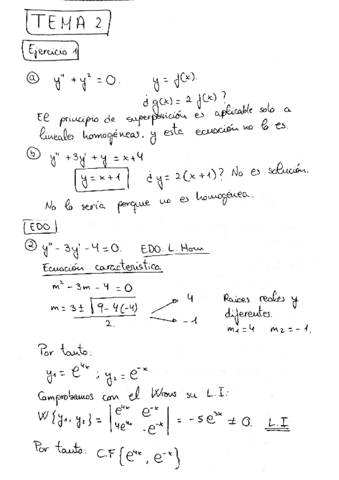 TEMA 2
Ejercicio 1
ⓐ y'' + y² = 0. y = f(x).
¿ g(x) = 2 f(x) ?
El principio de superposición es aplicable solo a
lineales homogéneas, y esta ecuación no lo es.
ⓑ y'' + 3y' + y = x+4
y = x+1 ¿ y = 2(x+1)? No es solución.
No lo sería porque no es homogénea.
EDO
② y'' - 3y' - 4 = 0. EDO. L. Hom
Ecuación característica
m² - 3m - 4 = 0
m = 3 ± √9 - 4(-4) / 2. 4 -1 Raíces reales y
diferentes.
m₁ = 4 m₂ = -1.
Por tanto:
y₁ = e⁴ˣ ; y₂ = e⁻ˣ
Comprobamos con el Wrons su L.I:
W{y₁, y₂} = | e⁴ˣ e⁻ˣ |
| 4e⁴ˣ -e⁻ˣ | = -5e³ˣ ≠ 0. L.I
Por tanto: C.F {e⁴ˣ, e⁻ˣ}